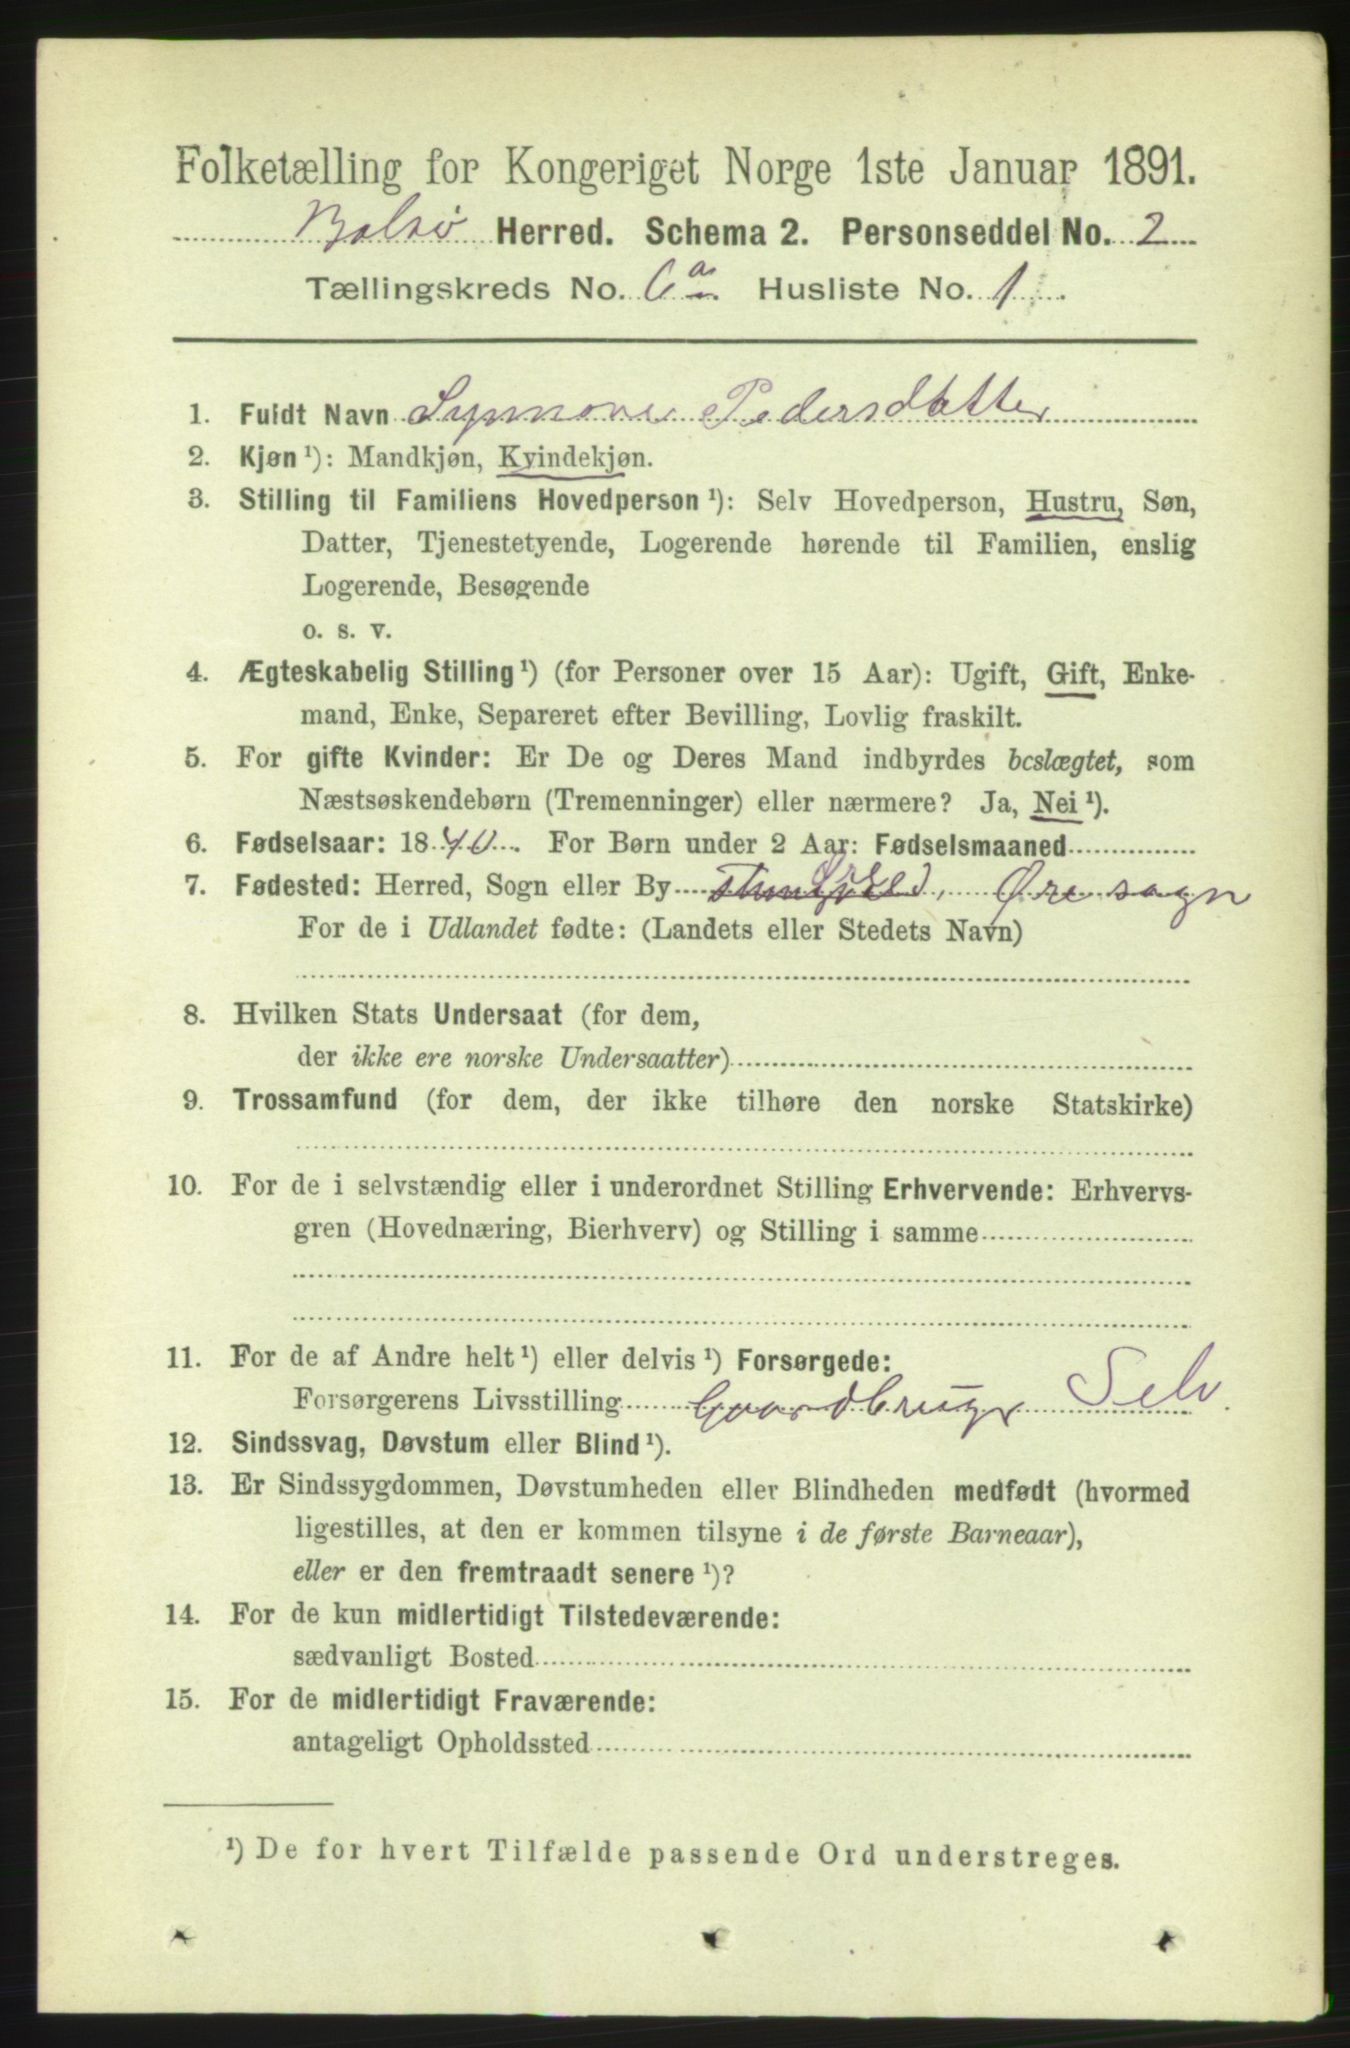 Folketælling for Kongeriget Norge 1ste Januar 1891.
Bolsø Herred. Schema 2. Personseddel No. 2
Tællingskreds No. 6a Husliste No. 1
1. Fuldt Navn Synnove Pedersdatter
2. Kjøn ¹): Mandkjøn, Kvindekjøn.
3. Stilling til Familiens Hovedperson ¹): Selv Hovedperson, Hustru, Søn,
Datter, Tjenestetyende, Logerende hørende til Familien, enslig
Logerende, Besøgende
o. s. v.
4. Ægteskabelig Stilling ¹) (for Personer over 15 Aar): Ugift, Gift, Enke-
mand, Enke, Separeret efter Bevilling, Lovlig fraskilt.
5. For gifte Kvinder: Er De og Deres Mand indbyrdes beslægtet, som
Næstsøskendebørn (Tremenninger) eller nærmere? Ja, Nei ¹).
6. Fødselsaar: 1840. For Børn under 2 Aar: Fødselsmaaned
7. Fødested: Herred, Sogn eller By Øre sogn
For de i Udlandet fødte: (Landets eller Stedets Navn)
8. Hvilken Stats Undersaat (for dem,
der ikke ere norske Undersaatter)
9. Trossamfund (for dem, der ikke tilhøre den norske Statskirke)
10. For de i selvstændig eller i underordnet Stilling Erhvervende: Erhvervs-
gren (Hovednæring, Bierhverv) og Stilling i samme
11. For de af Andre helt ¹) eller delvis ¹) Forsørgede:
Forsørgerens Livsstilling Gaardbruger Selv.
12. Sindssvag, Døvstum eller Blind ¹).
13. Er Sindssygdommen, Døvstumheden eller Blindheden medfødt (hvormed
ligestilles, at den er kommen tilsyne i de første Barneaar),
eller er den fremtraadt senere ¹)?
14. For de kun midlertidigt Tilstedeværende:
sædvanligt Bosted
15. For de midlertidigt Fraværende:
antageligt Opholdssted
¹) De for hvert Tilfælde passende Ord understreges.